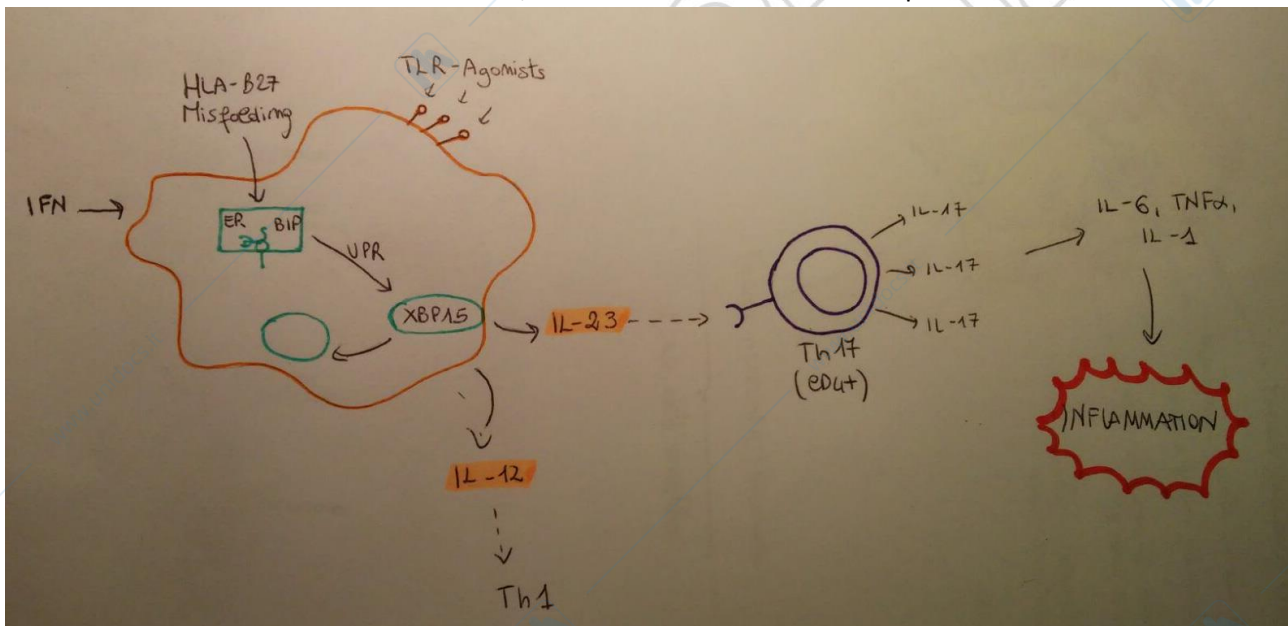 HLA-B27
Misfolding
TLR-Agonists
IFN
ER BIP
UPR
XBP1S
IL-23
IL-12
Th1
Th17
(CD4+)
IL-17
IL-17
IL-17
IL-6, TNFα,
IL-1
INFLAMMATION